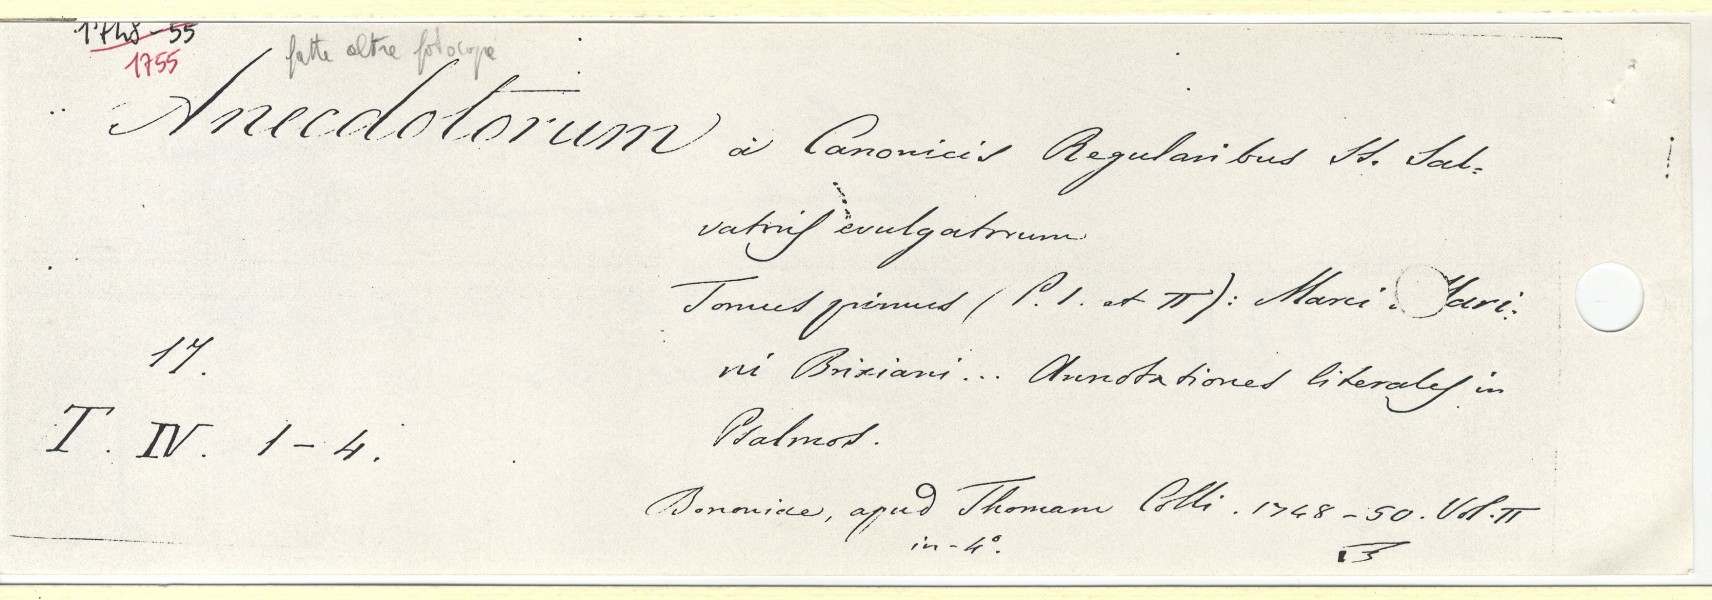 1748-55
1755
fatte oltre fotocopie
Anecdotorum à Canonicis Regularibus SS. Sal=
vatoris evulgatorum
Tomus primus (P. I. et II): Marci Mari=
ni Brixiani... Annotationes literales in
Psalmos.
17.
T. IV. 1-4.
Bononiae, apud Thomam Colli. 1748-50. Vol. II
in-4°.